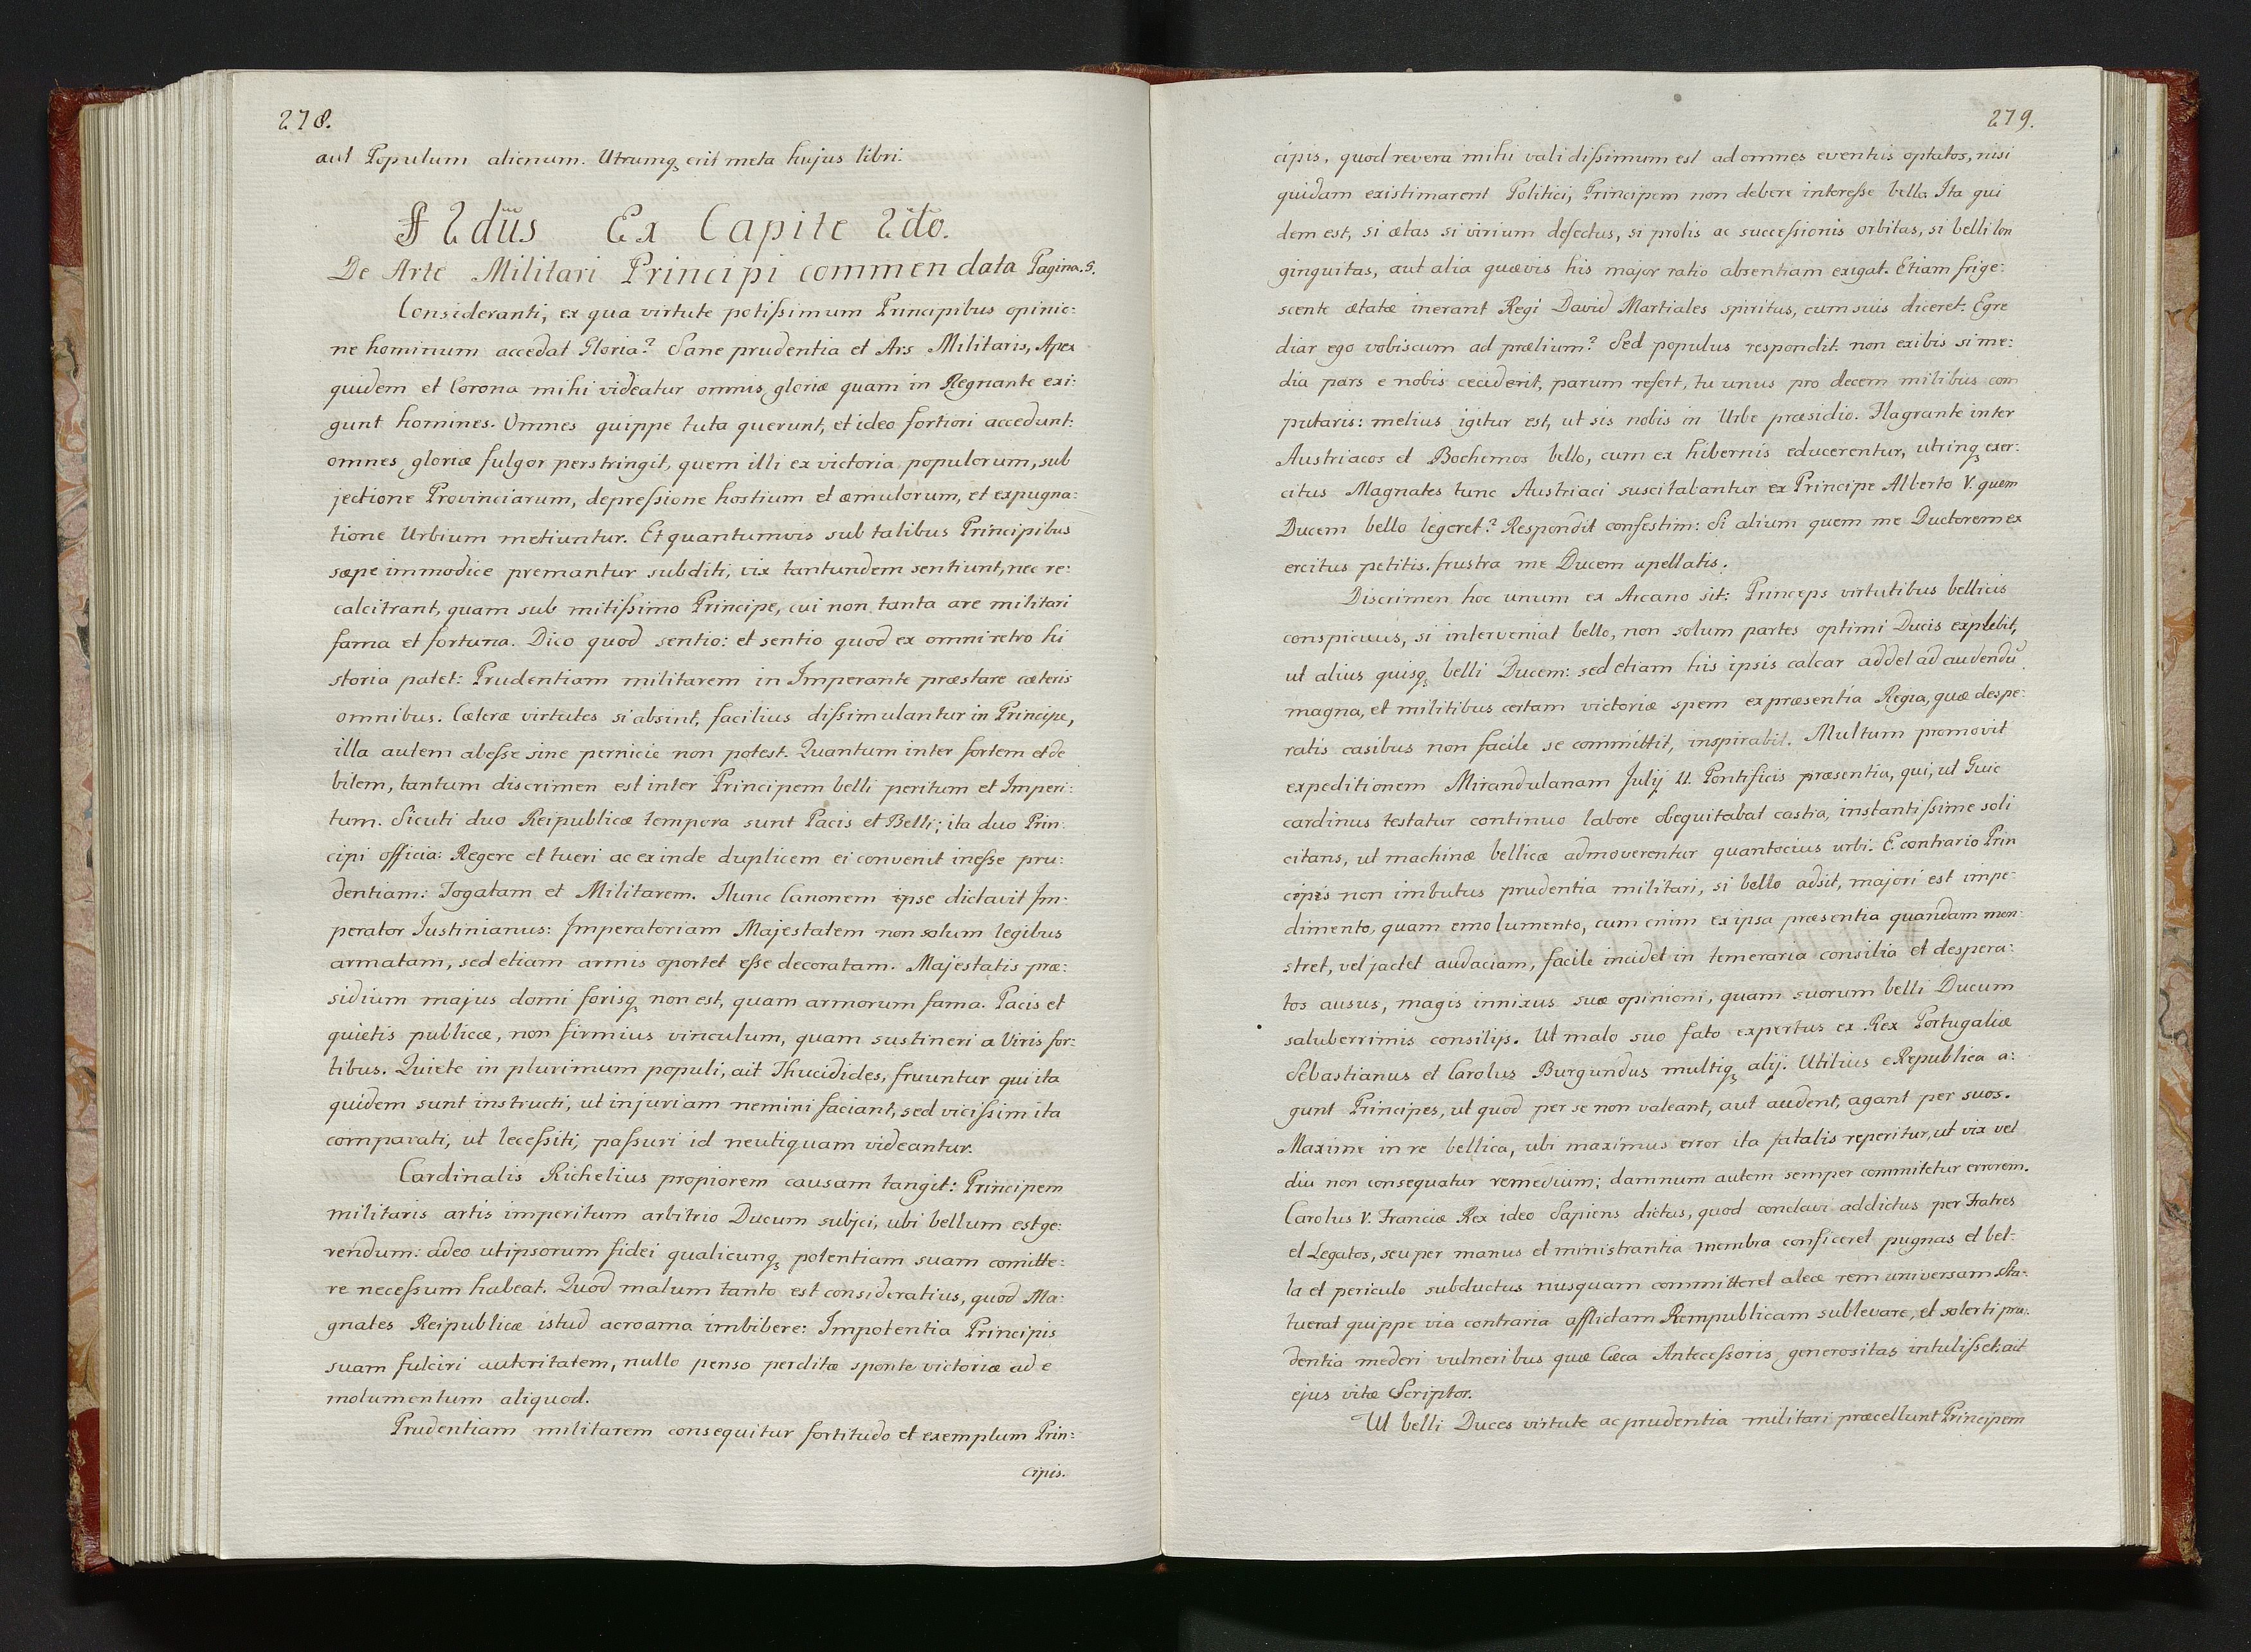 278.
aut Populum alienum. Utrumq̨ erit meta hujus libri.
§ 2dus Ex Capite 2do.
De Arte Militari Principi commendata Pagina. 5.
Consideranti, ex qua virtute potissimum Principibus opinio:
ne hominum accedat Gloria? Sane prudentia et Ars Militaris, Apex
quidem et Corona mihi videatur omnis gloriæ quam in Regnante exi:
gunt homines. Omnes quippe tuta querunt, et ideo fortiori accedunt:
omnes gloriæ fulgor perstringit, quem illi ex victoria populorum, sub
jectione Provinciarum, depressione hostium et æmulorum, et expugna:
tione Urbium metiuntur. Et quantumvis sub talibus Principibus
sæpe immodice premantur subditi, vix tantundem sentiunt, nec re:
calcitrant, quam sub mitissimo Principe, cui non tanta are militari
fama et fortuna. Dico quod sentio: et sentio quod ex omni retro hi
storia patet: Prudentiam militarem in Imperante præstare cæteris
omnibus. Cæteræ virtutes si absint, facilius dissimulantur in Principe,
illa autem abesse sine pernicie non potest. Quantum inter fortem et de
bilem, tantum discrimen est inter Principem belli peritum et Imperi:
tum. Sicuti duo Reipublicæ tempora sunt Pacis et Belli; ita duo Prin
cipi officia: Regere et tueri ac exinde duplicem ei convenit inesse pru:
dentiam: Togatam et Militarem. Hunc Canonem ipse dictavit Im:
perator Justinianus: Imperatoriam Majestatem non solum legibus
armatam, sed etiam armis oportet esse decoratam. Majestatis præ:
sidium majus domi forisq̨ non est, quam armorum fama. Pacis et
quietis publicæ, non firmius vinculum, quam sustineri a Viris for:
tibus. Quiete in plurimum populi, ait Thucidides, fruuntur qui ita
quidem sunt instructi, ut injuriam nemini faciant, sed vicissim ita
comparati, ut lecessiti, passuri id neutiquam videantur.
Cardinalis Richelius propiorem causam tangit: Principem
militaris artis imperitum arbitrio Ducum subjci, ubi bellum est ge:
rendum: adeo ut ipsorum fidei qualicunq̨ potentiam suam comitte:
re necessum habeat. Quod malum tanto est consideratius, quod Ma:
gnates Reipublicæ istud acroama imbibere: Impotentia Principis
suam fulciri autoritatem, nullo penso perditæ sponte victoriæ ad e
molumentum aliquod.
Prudentiam militarem consequitur fortitudo et exemplum Prin:
cipis.
279.
cipis, quod revera mihi validissimum est ad omnes eventus optatos, nisi
quidam existimarent Politici, Principem non debere interesse bello. Ita qui
dem est, si ætas si virium defectus, si prolis ac successionis orbitas, si belli lon
ginquitas, aut alia quævis his major ratio absentiam exigat. Etiam frige:
scente ætate inerant Regi David Martiales spiritus, cum suis diceret: Egre
diar ego vobiscum ad prælium? Sed populus respondit: non exibis si me:
dia pars e nobis ceciderit, parum refert, tu unus pro decem milibus com
putaris: melius igitur est, ut sis nobis in Urbe præsidio. Flagrante inter
Austriacos et Bochemos bello, cum ex hibernis educerentur, utrinq̨ exer:
citus Magnates tunc Austriaci suscitabantur ex Principe Alberto V. quem
Ducem bello legeret? Respondit confestim: Si alium quem me Ductorem ex
ercitus petitis. frustra me Ducem apellatis.
Discrimen hoc unum ex Arcano sit: Princeps virtutibus bellicis
conspicuus, si interveniat bello, non solum partes optimi Ducis explebit,
ut alius quisq̨ belli Ducem: sed etiam his ipsis calcar addet ad audendũ
magna, et militibus certam victoriæ spem ex præsentia Regia, quæ despe:
ratis casibus non facile se committit, inspirabit. Multum promovit
expeditionem Mirandulanam Julij II. Pontificis præsentia, qui, ut Guic
cardinus testatur continuo labore obequitabat castra, instantissime soli
citans, ut machinæ bellicæ admoverentur quantocius urbi. E. contrario Prin
cipis non imbutus prudentia militari, si bello adsit, majori est impe:
dimento, quam emolumento, cum enim ex ipsa præsentia quandam mon:
stret, vel jactet audaciam, facile incidet in temeraria consilia et despera:
tos ausus, magis innixus suæ opinioni, quam suorum belli Ducum
saluberrimis consilijs. Ut malo suo fato expertus ex Rex Portugaliæ
Sebastianus et Carolus Burgundus multiq̨ alij. Utilius e Republica a:
gunt Principes, ut quod per se non valeant, aut audent, agant per suos.
Maxime in re bellica, ubi maximus error ita fatalis reperitur, ut vix vel
diu non consequatur remedium; damnum autem semper commitetur errorem.
Carolus V. Franciæ Rex ideo Sapiens dictus, quod conclavi addictus per Fratres
et Legatos, seu per manus et ministrantia membra conficeret pugnas et bel:
la et periculo subductus nusquam committeret aleæ rem universam Sta:
tuerat quippe via contraria afflictam Rempublicam sublevare, et solerti pru:
dentia mederi vulneribus quæ Cæca Antecessoris generositas intulisset: ait
ejus vitæ Scriptor.
Ut belli Duces virtute ac prudentia militari præcellunt Principem